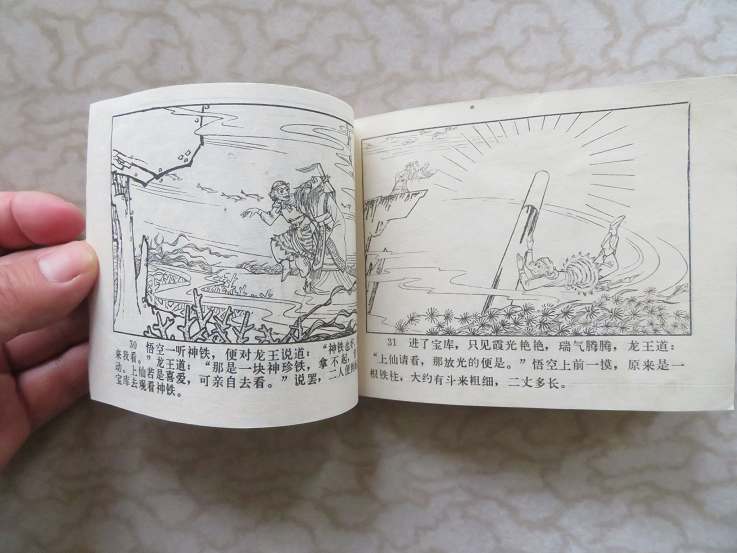 30 悟空一听神铁，便对龙王说道：“神铁也
来我看。”龙王道：“那是一块神珍铁，拿不起，
动。上仙若是喜爱，可亲自去看。”说罢，二人便
宝库去观看神铁。
31 进了宝库，只见霞光艳艳，瑞气腾腾，龙王道：
“上仙请看，那放光的便是。”悟空上前一摸，原来是一
根铁柱，大约有斗来粗细，二丈多长。